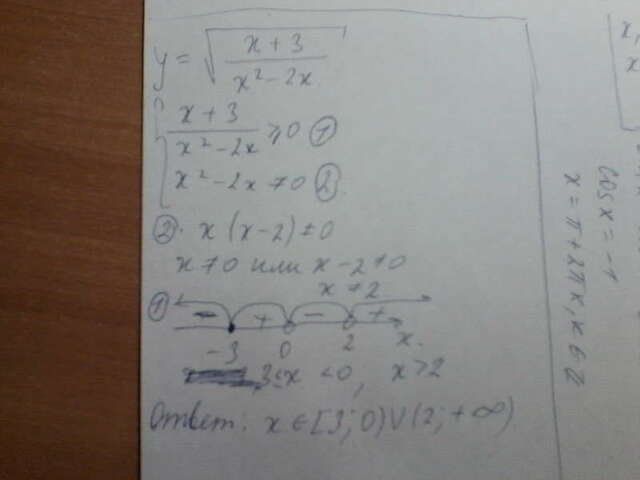 y = √((x + 3)/(x² - 2x))
{ (x + 3)/(x² - 2x) ≥ 0 ①
x² - 2x ≠ 0 ②
②. x (x - 2) ≠ 0
x ≠ 0 или x - 2 ≠ 0
x ≠ 2
① - + - +
-3 0 2 x
3 ≤ x < 0, x > 2
Ответ: x ∈ [3; 0) ∪ (2; +∞)
cos x = -1
x = π + 2πk, k ∈ Z
x,
x